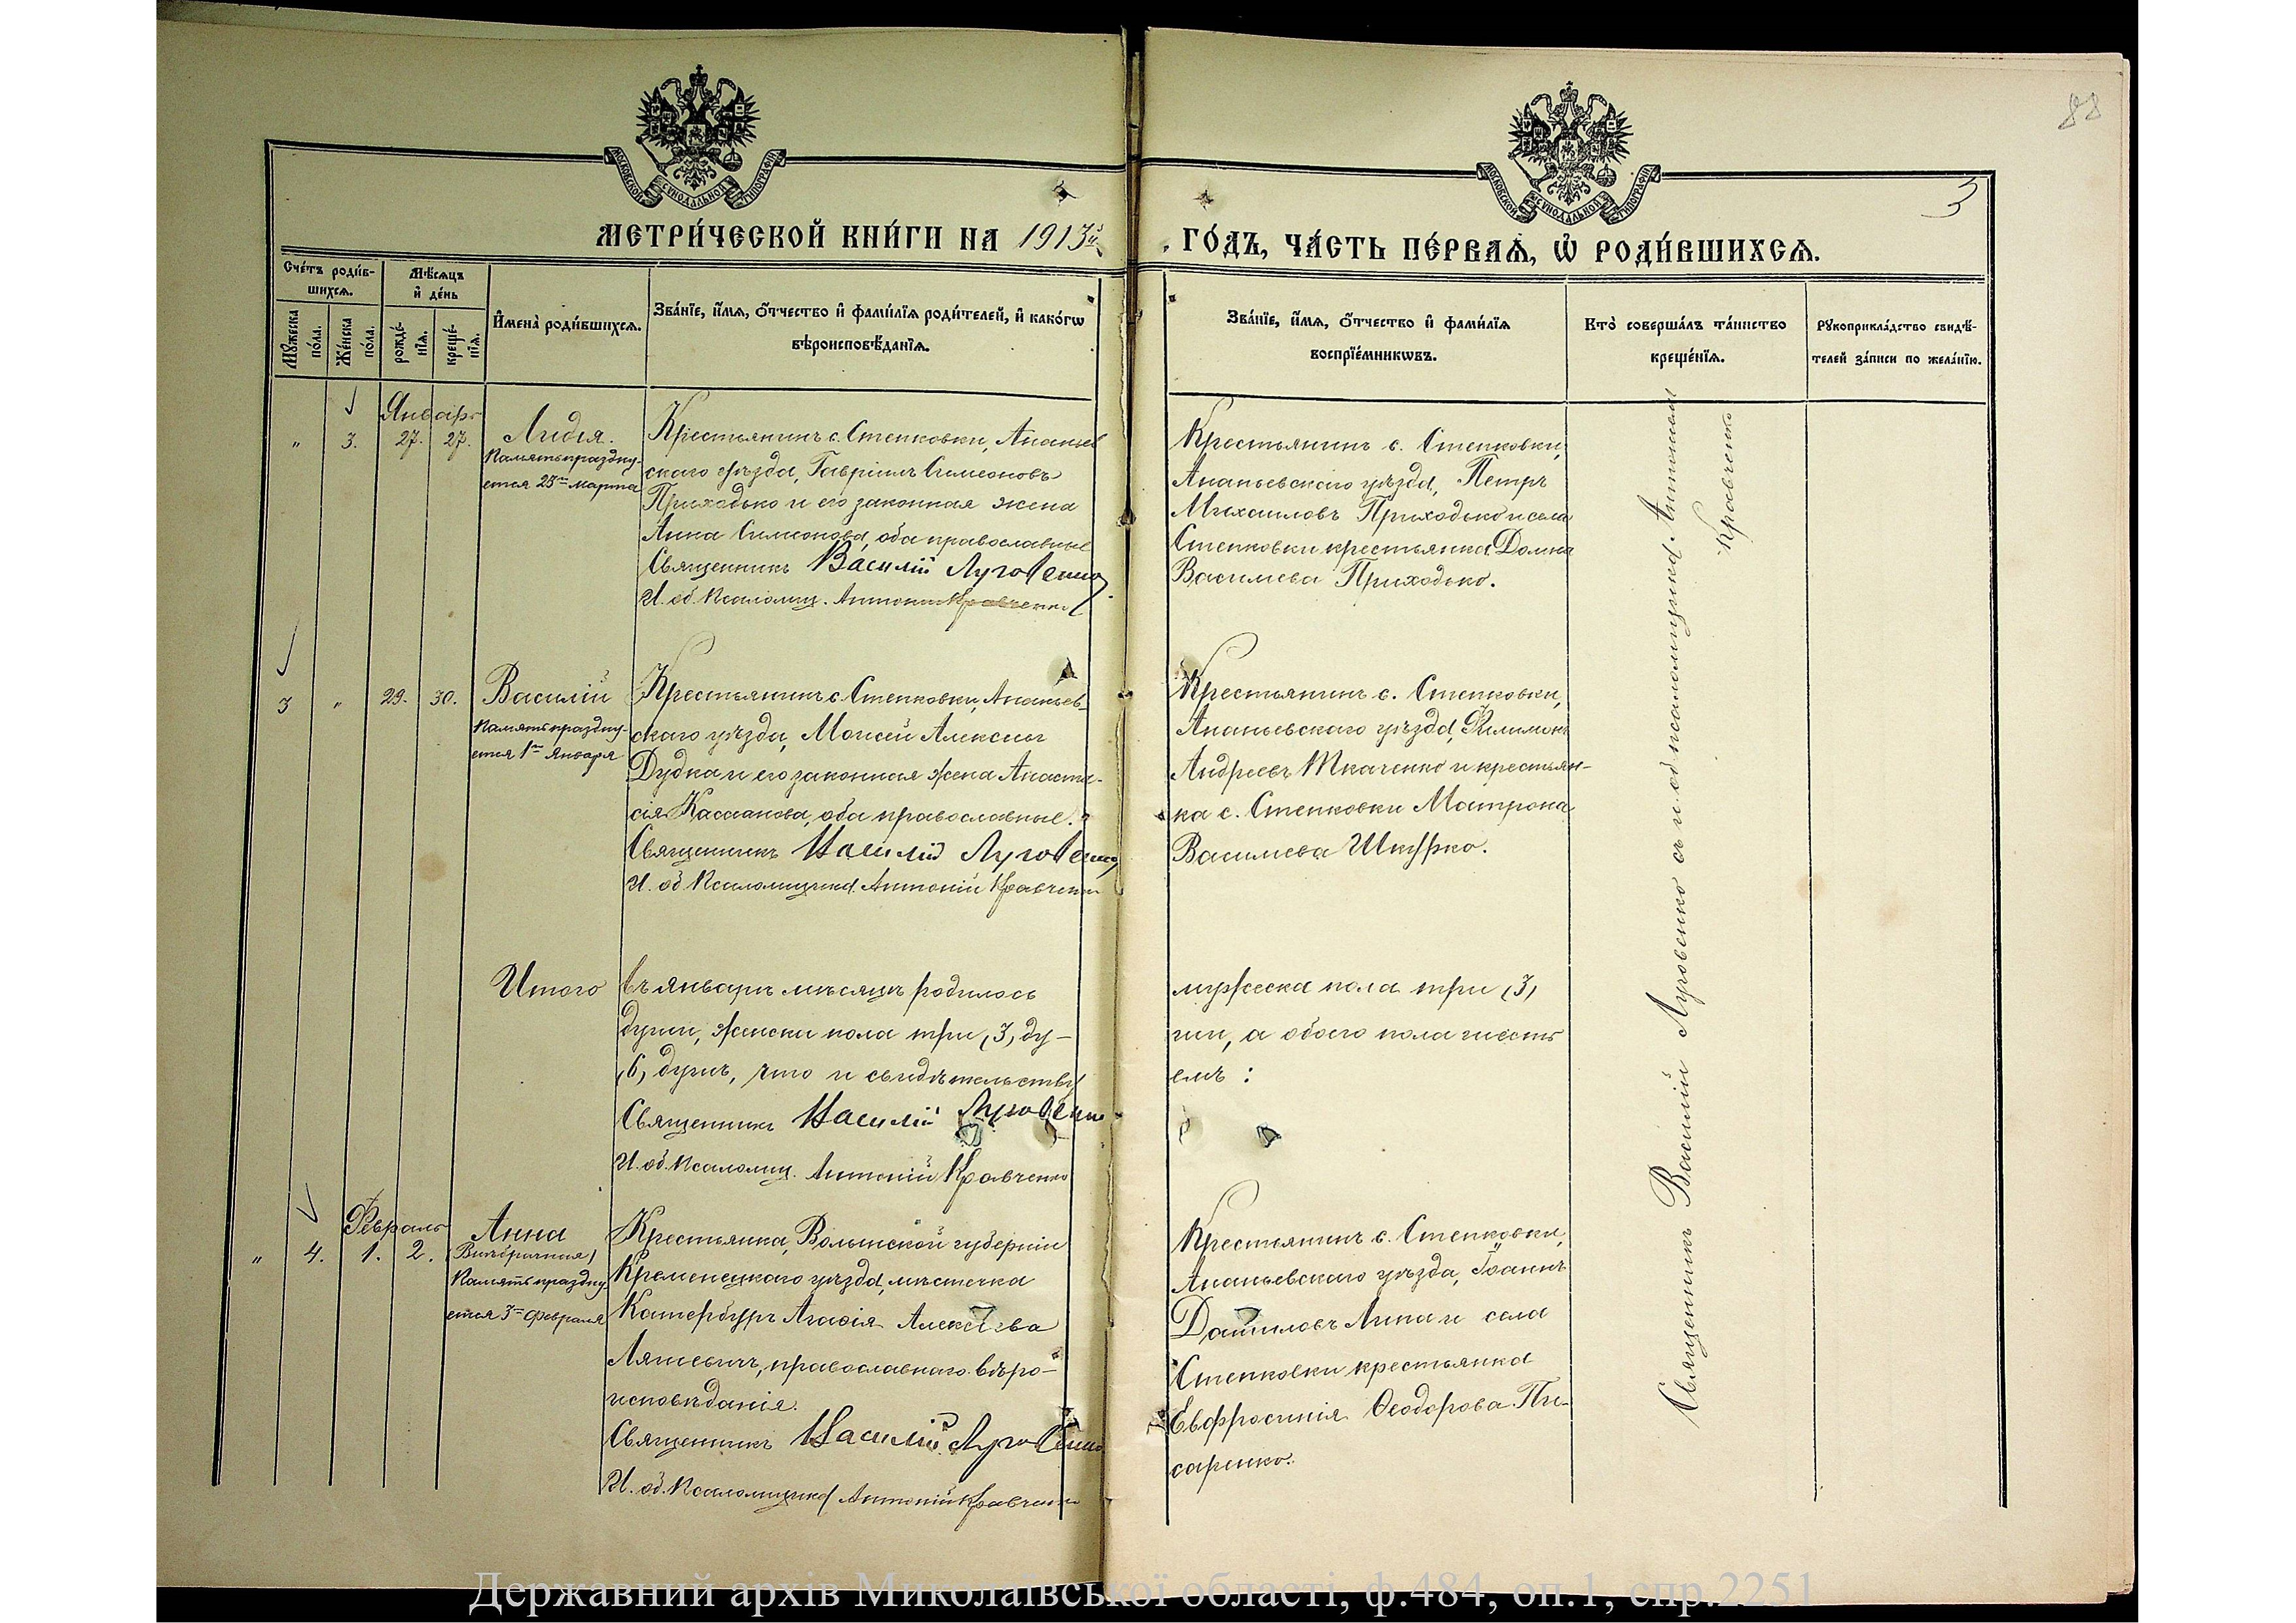 88
3
МОСКОВСКОЙ СѴНОДАЛЬНОЙ ТИПОГРАФІИ
МОСКОВСКОЙ СѴНОДАЛЬНОЙ ТИПОГРАФІИ
МЕТРИ́ЧЕСКОЙ КНИ́ГИ НА 1913й
ГО́ДЪ, ЧА́СТЬ ПЕ́РВАѦ, Ѡ҆ РОДИ́ВШИХСѦ.
Сче́тъ роди́в-
шихсѧ.
Мꙋ́жеска по́ла.
Же́нска по́ла.
Мѣ́сѧцъ
и҆ де́нь
рожде́-нїѧ.
креще́-нїѧ.
И҆мена̀ роди́вшихсѧ.
Зва́нїе, и҆́мѧ, ѻ҆́тчество и҆ фами́лїѧ роди́телей, и҆ како́гѡ
вѣроисповѣ́данїѧ.
Зва́нїе, и҆́мѧ, ѻ҆́тчество и҆ фами́лїѧ
воспрїе́мникѡвъ.
Кто̀ соверша́лъ та́инство
креще́нїѧ.
Рꙋкоприкла́дство свидѣ́-
телей за́писи по жела́нїю.
Январь
" 3. 27. 27. Лидія.
Память праздну-
ется 23го марта
Крестьянинъ с. Степковки, Ананьев
скаго уѣзда, Гавріилъ Симеоновъ
Приходько и его законная жена
Анна Симеонова, оба православные
Священникъ Василій Луговенко
И. об. Псаломщ. Антоній Кравченко
Крестьянинъ с. Степковки,
Ананьевскаго уѣзда, Петръ
Михаиловъ Приходько и села
Степковки крестьянка Домна
Васильева Приходько.
3 " 29. 30. Василій
Память праздну-
ется 1го Января
Крестьянинъ с. Степковки, Ананьев-
скаго уѣзда, Моисей Алексіевъ
Дудка и его законная жена Анаста-
сія Кассіанова, оба православные.
Священникъ Василій Луговенко
И. об. Псаломщика Антоній Кравченко
Крестьянинъ с. Степковки,
Ананьевскаго уѣзда, Филимонъ
Андреевъ Ткаченко и крестьян-
ка с. Степковки Матрона
Васильева Шкурко.
Итого въ январѣ мѣсяцѣ родилось
душъ, женска пола три (3) ду-
(6) душъ, что и свидѣтельству
Священникъ Василій Луговенко
И. об. Псаломщ. Антоній Кравченко
мужеска пола три (3)
ши, а обоего пола шесть
емъ:
Февраль
" 4. 1. 2. Анна
(Внѣбрачная)
Память праздну-
ется 3го февраля
Крестьянка, Волынской губерніи
Кременецкаго уѣзда, мѣстечка
Катербургъ Агафія Алексіева
Ляшевичъ, православнаго вѣро-
исповѣданія.
Священникъ Василій Луговенко
И. об. Псаломщика Антоній Кравченко
Крестьянинъ с. Степковки,
Ананьевскаго уѣзда, Іоаннъ
Даниловъ Липа и села
Степковки крестьянка
Евфросинія Ѳеодорова Пи-
саренко.
Священникъ Василій Луговенко съ и. об. псаломщика Антоніемъ
Кравченко
Державний архів Миколаївської області, ф.484, оп.1, спр.2251